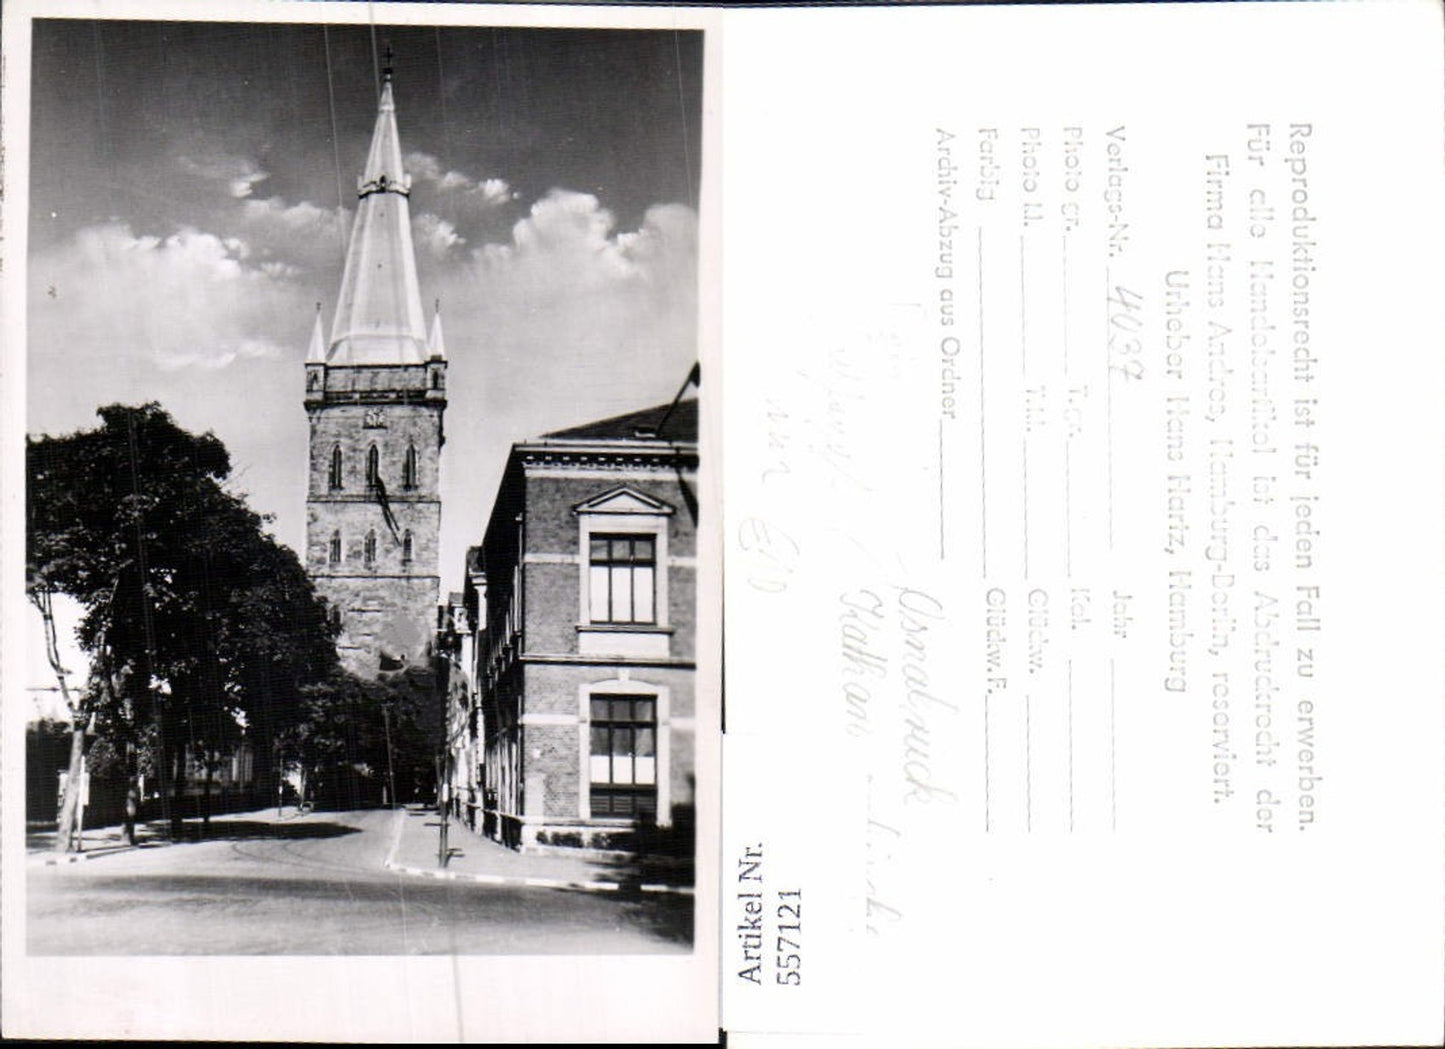 Reproduktionsrecht ist für jeden Fall zu erwerben.
Für alle Handelsartikel ist das Abdruckrecht der
Firma Hans Andres, Hamburg-Berlin, reserviert.
Urheber Hans Hartz, Hamburg
Verlags-Nr. 4037 Jahr
Photo gr. T. gr. Kal.
Photo kl. T. kl. Glückw.
Farbig Glückw. F.
Archiv-Abzug aus Ordner
Osnabrück
Artikel Nr.
557121